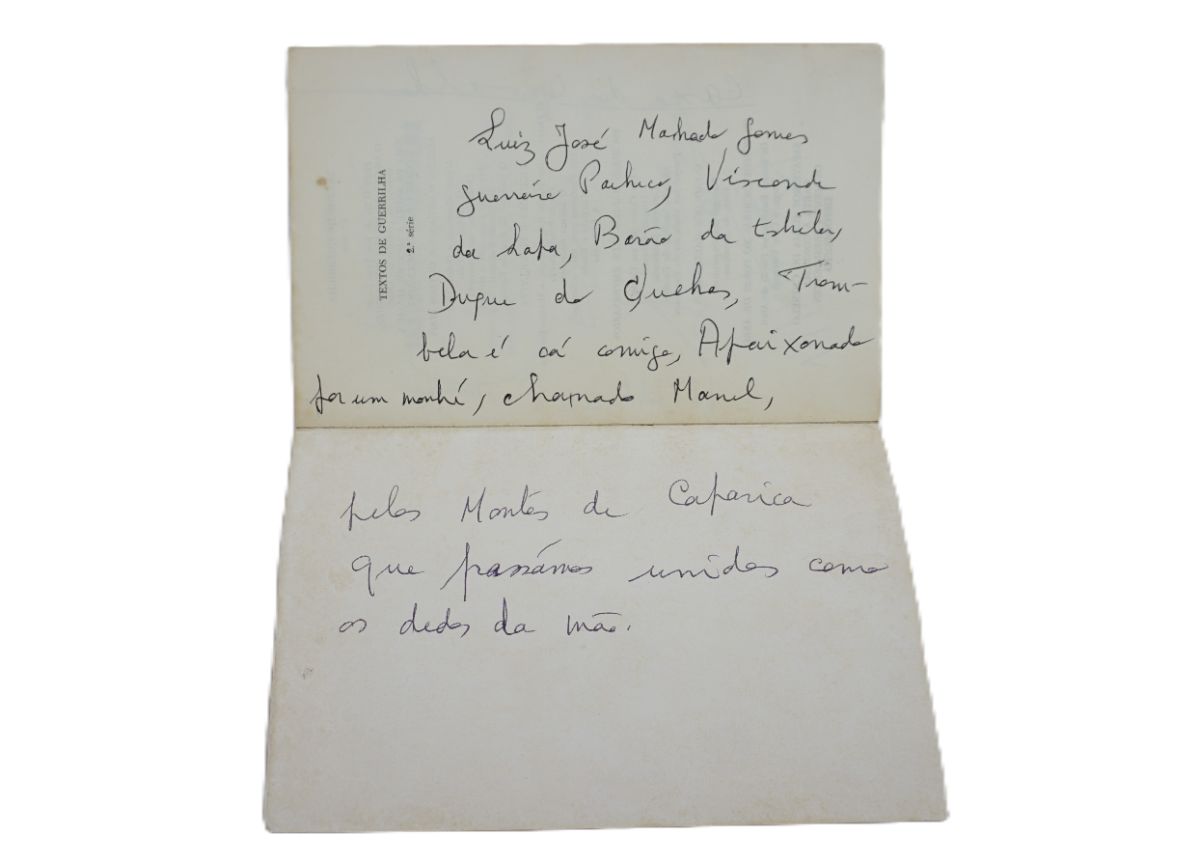 Luiz José Machado Gomes
Guerreiro Pacheco, Visconde
da Lapa, Barão da Estrela,
Duque do Quelhas, Trom-
bela é cá comigo, Apaixonado
por um monhé, chamado Manel,
pelos Montes de Caparica
que passámos unidos como
os dedos da mão.
TEXTOS DE GUERRILHA
2.ª série